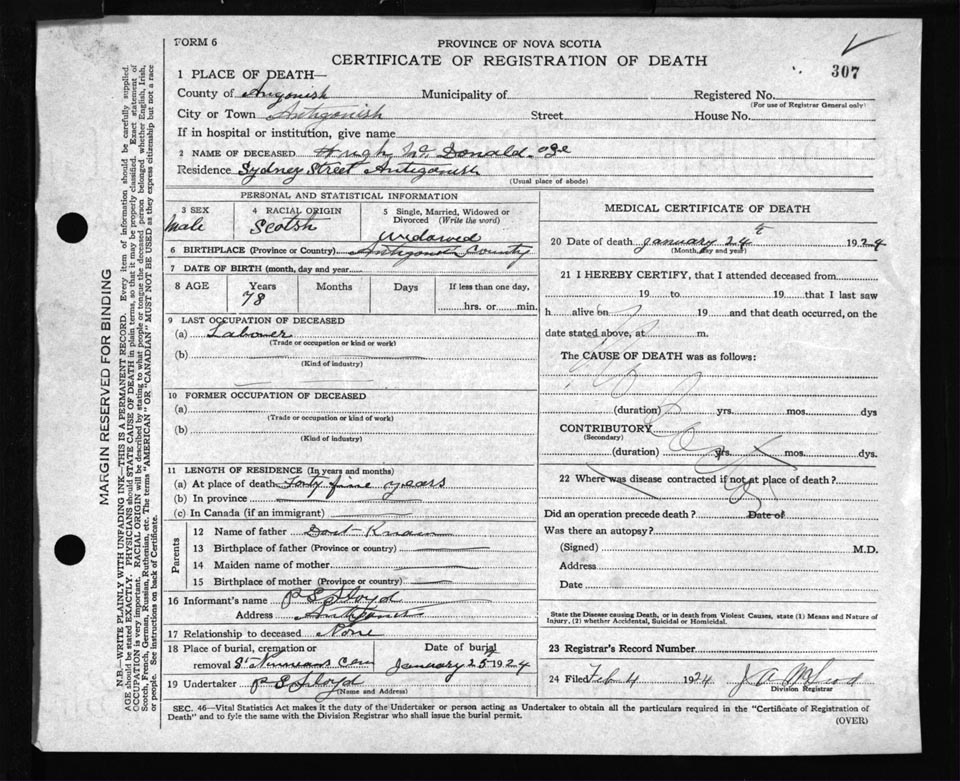 FORM 6
PROVINCE OF NOVA SCOTIA
CERTIFICATE OF REGISTRATION OF DEATH
307
1 PLACE OF DEATH—
County of Angonish Municipality of Registered No.
(For use of Registrar General only)
City or Town Antigonish Street House No.
If in hospital or institution, give name
2 NAME OF DECEASED Hugh McDonald oge
Residence Sydney Street Antigonish
(Usual place of abode)
PERSONAL AND STATISTICAL INFORMATION
3 SEX 4 RACIAL ORIGIN 5 Single, Married, Widowed or Divorced (Write the word)
Male Scotsh Widowed
6 BIRTHPLACE (Province or Country) County
7 DATE OF BIRTH (month, day and year)
8 AGE Years Months Days If less than one day,
78 hrs. or min.
9 LAST OCCUPATION OF DECEASED
(a) Labourer
(Trade or occupation or kind or work)
(b)
(Kind of industry)
10 FORMER OCCUPATION OF DECEASED
(a)
(Trade or occupation or kind of work)
(b)
(Kind of industry)
11 LENGTH OF RESIDENCE (In years and months)
(a) At place of death Forty five years
(b) In province
(c) In Canada (if an immigrant)
Parents
12 Name of father Dont Know
13 Birthplace of father (Province or country)
14 Maiden name of mother
15 Birthplace of mother (Province or country)
16 Informant's name P S Floyd
Address
17 Relationship to deceased None
18 Place of burial, cremation or Date of burial
removal St Ninians Cem January 25 1924
19 Undertaker P S Floyd
(Name and Address)
MEDICAL CERTIFICATE OF DEATH
20 Date of death January 24th 1924
(Month, day and year)
21 I HEREBY CERTIFY, that I attended deceased from
19 to 19 that I last saw
h alive on 19 and that death occurred, on the
date stated above, at m.
The CAUSE OF DEATH was as follows:
(duration) yrs. mos. dys
CONTRIBUTORY
(Secondary)
(duration) yrs. mos. dys.
22 Where was disease contracted if not at place of death?
Did an operation precede death? Date of
Was there an autopsy?
(Signed) M.D.
Address
Date
State the Disease causing Death, or in death from Violent Causes, state (1) Means and Nature of
Injury, (2) whether Accidental, Suicidal or Homicidal.
23 Registrar's Record Number
24 Filed Feb 4 1924 J A McLeod
Division Registrar
SEC. 46—Vital Statistics Act makes it the duty of the Undertaker or person acting as Undertaker to obtain all the particulars required in the "Certificate of Registration of
Death" and to fyle the same with the Division Registrar who shall issue the burial permit.
(OVER)
MARGIN RESERVED FOR BINDING
N.B.—WRITE PLAINLY WITH UNFADING INK—THIS IS A PERMANENT RECORD. Every item of information should be carefully supplied.
AGE should be stated EXACTLY. PHYSICIANS should STATE CAUSE OF DEATH in plain terms, so that it may be properly classified. Exact statement of
OCCUPATION is very important. RACIAL ORIGIN will be described by stating to what people or tongue the deceased person belonged whether English, Irish,
Scotch, French, German, Russian, Ruthenian, etc. The terms "AMERICAN" OR "CANADIAN" MUST NOT BE USED as they express citizenship but not a race
or people. See instructions on back of Certificate.